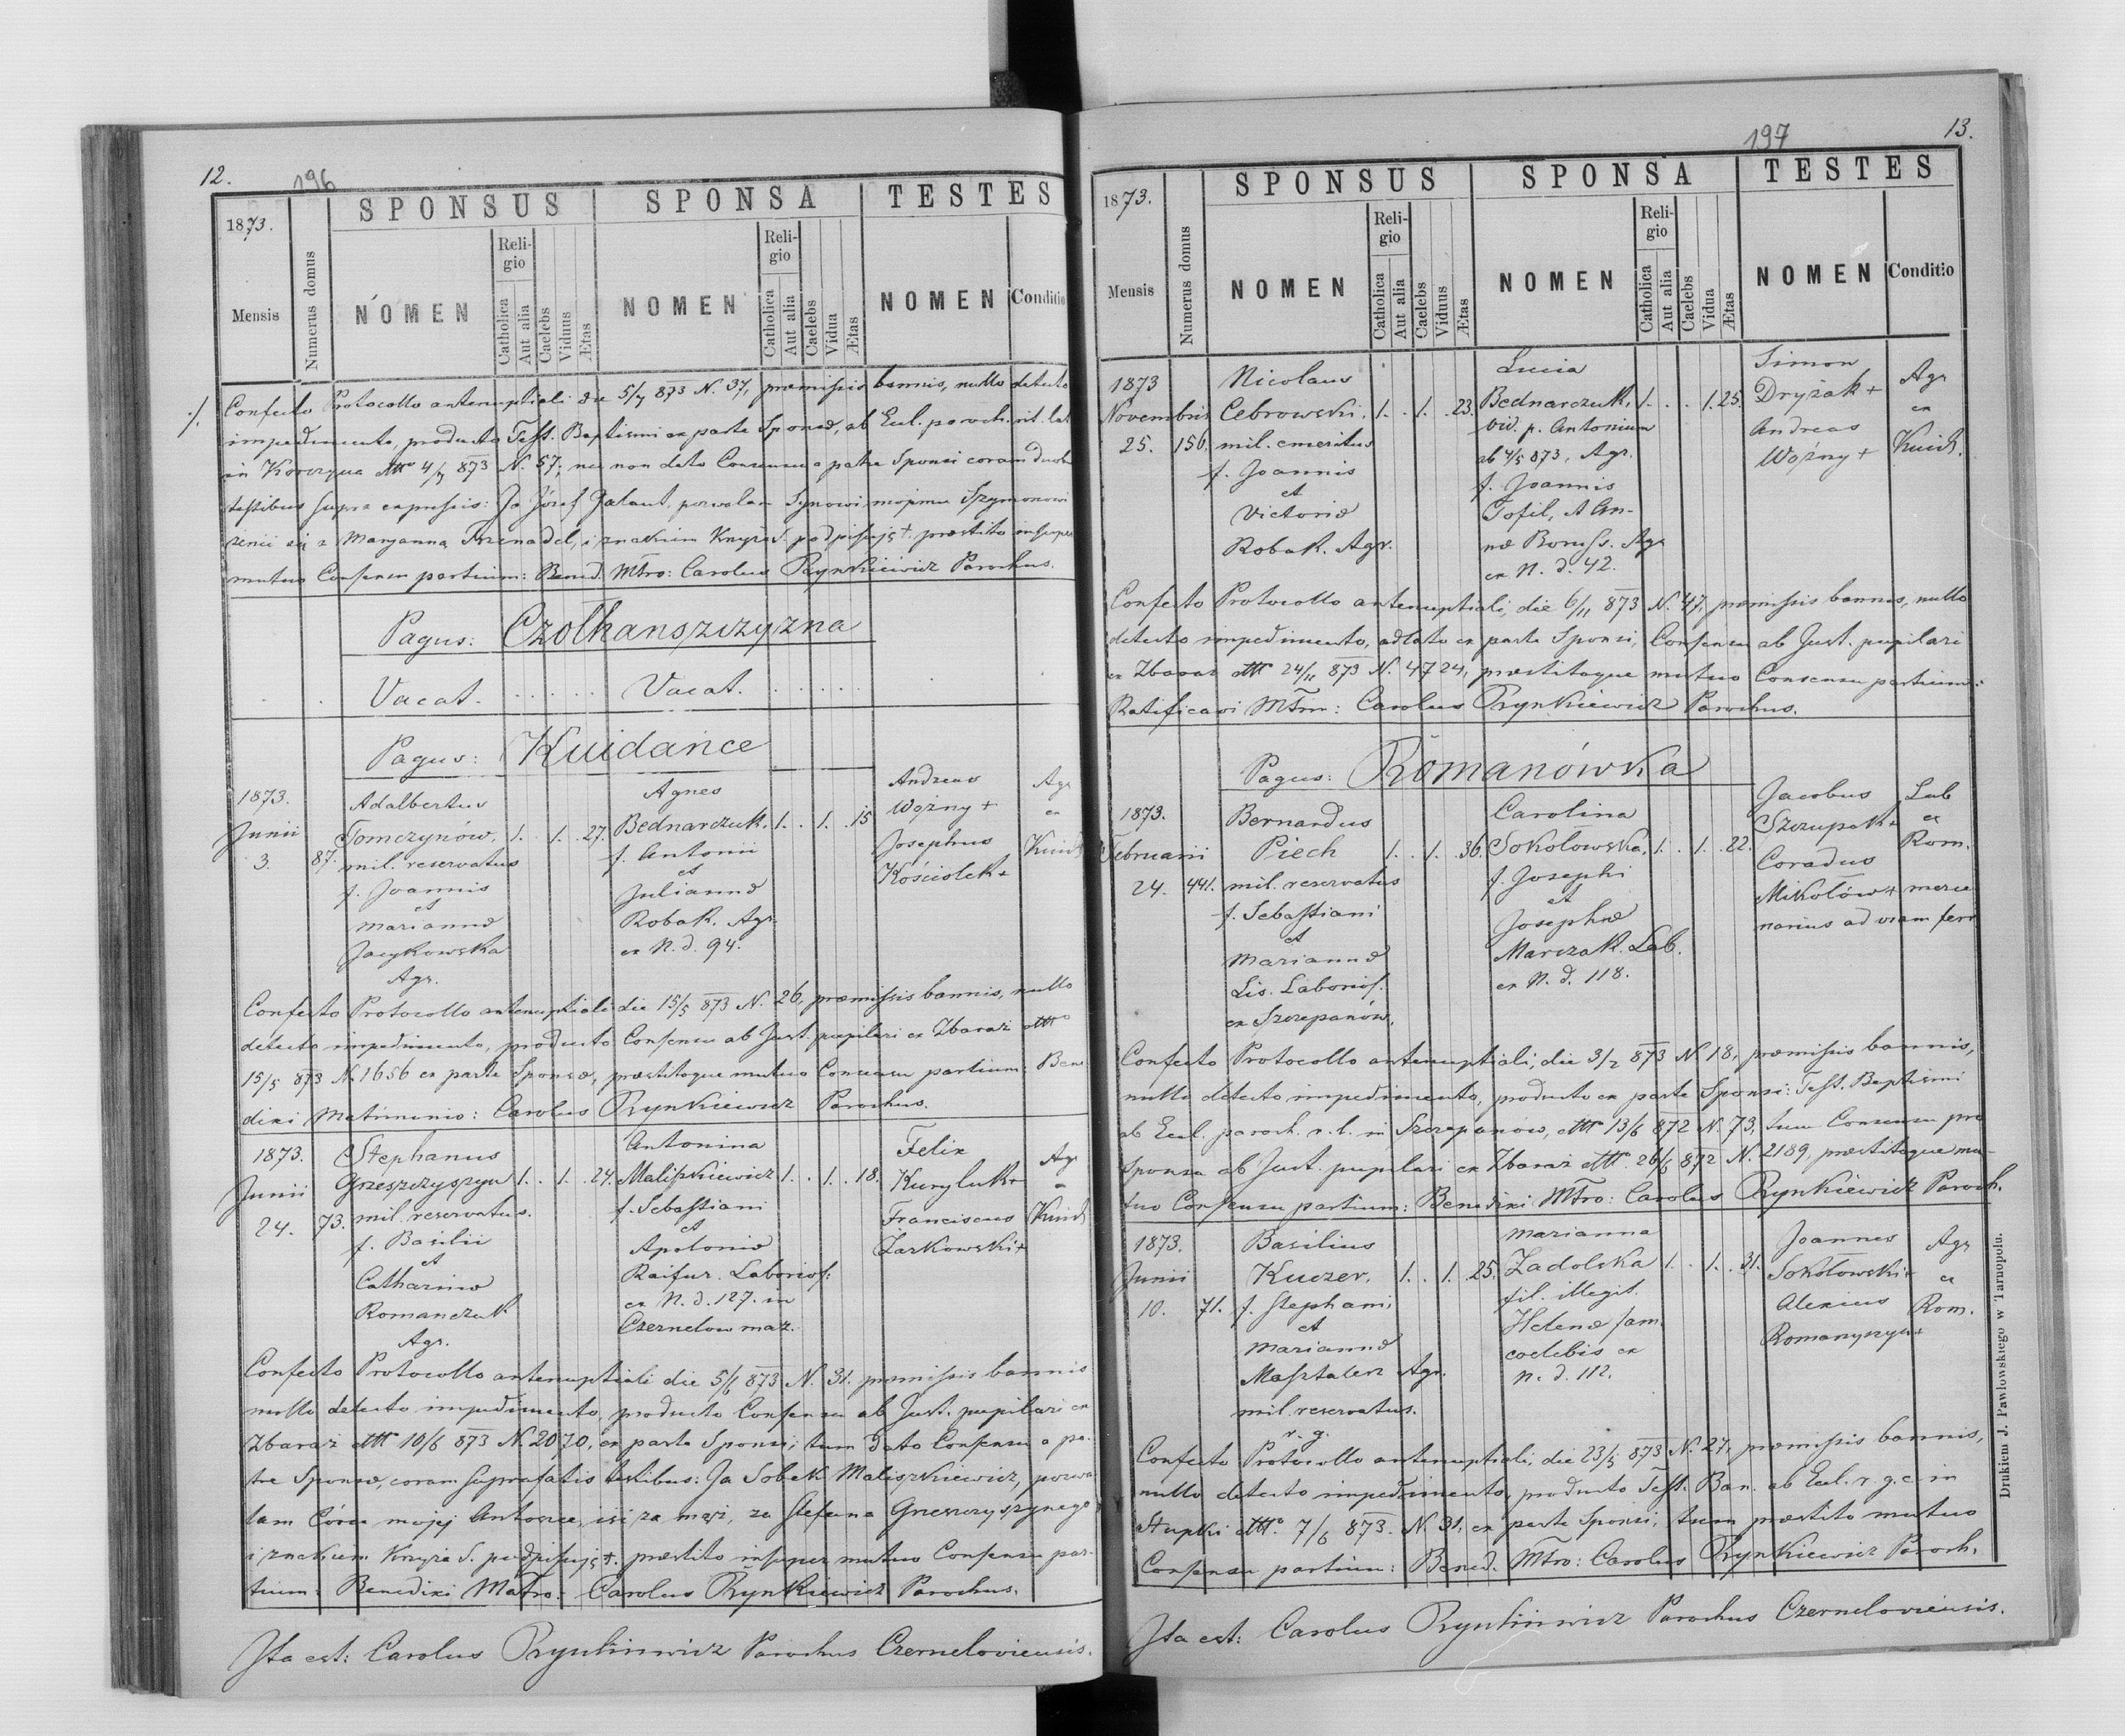 12.
196
1873.
SPONSUS
SPONSA
TESTES
Mensis
Numerus domus
NOMEN
Religio
Catholica
Aut alia
Caelebs
Viduus
Ætas
NOMEN
Religio
Catholica
Aut alia
Caelebs
Vidua
Ætas
NOMEN
Conditio
Confecto Protocollo antenuptiali die 5/7 873 N. 37, præmissis bannis, nullo detecto
impedimento, producto Test. Baptismi ex parte Sponsæ, ab Eccl. paroch. rit. lat.
in 4/7 873 N. 57, nec non dato Consensu a patre Sponsi coram
testibus supra expressis: Ja Józef Galant, pozwalam Synowi mojemu Szymonowi
żenić się z Maryanną i znakiem Krzyża S. podpisuję +. præstito insuper
mutuo Consensu partium: Bened. Mtro: Carolus Rynkiewicz Parochus.
Pagus: Czołhanszczyzna
Vacat. Vacat.
Pagus: Kuidance
1873.
Junii
3.
87.
Adalbertus
Tomczynów,
mil. reservatus
f. Joannis
et
Mariannæ
Jacykowska
Agr.
1. . 1. . 27.
Agnes
Bednarczuk.
f. Antonii
et
Juliannæ
Robak. Agr.
ex N. d. 94.
1. . 1. . 15
Andreas
Woźny +
Josephus
Kościolek +
Agr
ex
Kuid
Confecto Protocollo antenuptiali die 15/5 873 N. 26, præmissis bannis, nullo
detecto impedimento, producto Consensu ab Just. pupilari ex Zbaraż
15/5 873 N. 1656 ex parte Sponsæ, præstitoque mutuo Consensu partium: Bene
dixi Matrimonio: Carolus Rynkiewicz Parochus.
1873.
Junii
24.
73.
Stephanus
Grzeszczyszyn
mil. reservatus.
f. Basilii
et
Catharinæ
Romanczuk
Agr.
1. . 1. . 24.
Antonina
Maliszkiewicz
f. Sebastiani
et
Apoloniæ
Raifur. Laborios:
ex N. d. 127. in
Czernelow maz.
1. . 1. . 18.
Felix
Kuryluk +
Franciscus
Żarkowski +
Agr
Kuid
Confecto Protocollo antenuptiali die 5/6 873 N. 31. præmissis bannis
nullo detecto impedimento, producto Consensu ab Just. pupilari ex
Zbaraż 10/6 873 N. 2070, ex parte Sponsi; tum dato Consensu a pa-
tre Sponsæ, coram suprafatis testibus: Ja Sobek Maliszkiewicz, pozwa
lam Córce mojej Antosce, iść za mąż, za Stefana Grzeszczyszynego
i znakiem Krzyża S. podpisuję +. præstito insuper mutuo Consensu par-
tium: Benedixi Matro: Carolus Rynkiewicz Parochus.
Ita est: Carolus Rynkiewicz Parochus Czerneloviensis.
197
13.
1873.
SPONSUS
SPONSA
TESTES
Mensis
Numerus domus
NOMEN
Religio
Catholica
Aut alia
Caelebs
Viduus
Ætas
NOMEN
Religio
Catholica
Aut alia
Caelebs
Vidua
Ætas
NOMEN
Conditio
1873
Novembris
25.
156.
Nicolaus
Cebrowski.
mil. emeritus
f. Joannis
et
Victoriæ
Robak. Agr.
1. . 1. . 23.
Lucia
Bednarczuk,
vid. p. Antonium
ab 4/5 873, Agr.
f. Joannis
Tofil, et An-
næ Agr
ex N. d. 42.
1. . . 1. 25.
Simon
Dryżak +
Andreas
Woźny +
Agr
ex
Kuid.
Confecto Protocollo antenuptiali, die 6/11 873 N. 47, præmissis bannis, nullo
detecto impedimento, adlato ex parte Sponsi, Consensu ab Just. pupilari
ex Zbaraż 873 N. 4724, præstitoque mutuo Consensu partium:
Ratificavi Mtrm: Carolus Rynkiewicz Parochus.
Pagus: Romanówka
1873.
Februarii
24.
441.
Bernardus
Piech
mil. reservatus
f. Sebastiani
et
Mariannæ
Lis. Laborios.
ex Szczepanów.
1. . 1. . 36.
Carolina
Sokołowska,
f. Josephi
et
Josephæ
Marczak. Lab.
ex N. d. 118.
1. . 1. . 22.
Jacobus
Szczupak +
Coradus
Mikołów + merce
narius ad viam ferr
Lab
ex
Rom.
Confecto Protocollo antenuptiali, die 3/2 873 N. 18, præmissis bannis,
nullo detecto impedimento, producto ex parte Sponsi: Test. Baptismi
ab Eccl. paroch. r. l. in Szczepanow, 13/6 872 N. 73, tum Consensu pro
Sponsa ab Just. pupilari ex Zbaraż 26/6 872 N. 2189, præstitoque mu-
tuo Consensu partium: Benedixi Mtro: Carolus Rynkiewicz Paroch.
1873.
Junii
10.
71.
Basilius
Kuczer,
f. Stephani
et
Mariannæ
Masztalerz Agr.
mil. reservatus.
r. g.
1. . 1. . 25.
Marianna
Zadolska
fil. illegit.
Helenæ fam.
coelebis ex
N. d. 112.
1. . 1. . 31.
Joannes
Sokołowski +
Alexius
Romanyszyn +
Agr
ex
Rom.
Confecto Protocollo antenuptiali, die 23/5 873 N. 27, præmissis bannis,
nullo detecto impedimento, producto Test. Ban. ab Eccl. r. g. c. in
Stupki 7/6 873. N. 31, ex parte Sponsi, tum præstito mutuo
Consensu partium: Bened. Mtro: Carolus Rynkiewicz Paroch.
Ita est: Carolus Rynkiewicz Parochus Czerneloviensis.
Drukiem J. Pawłowskiego w Tarnopolu.